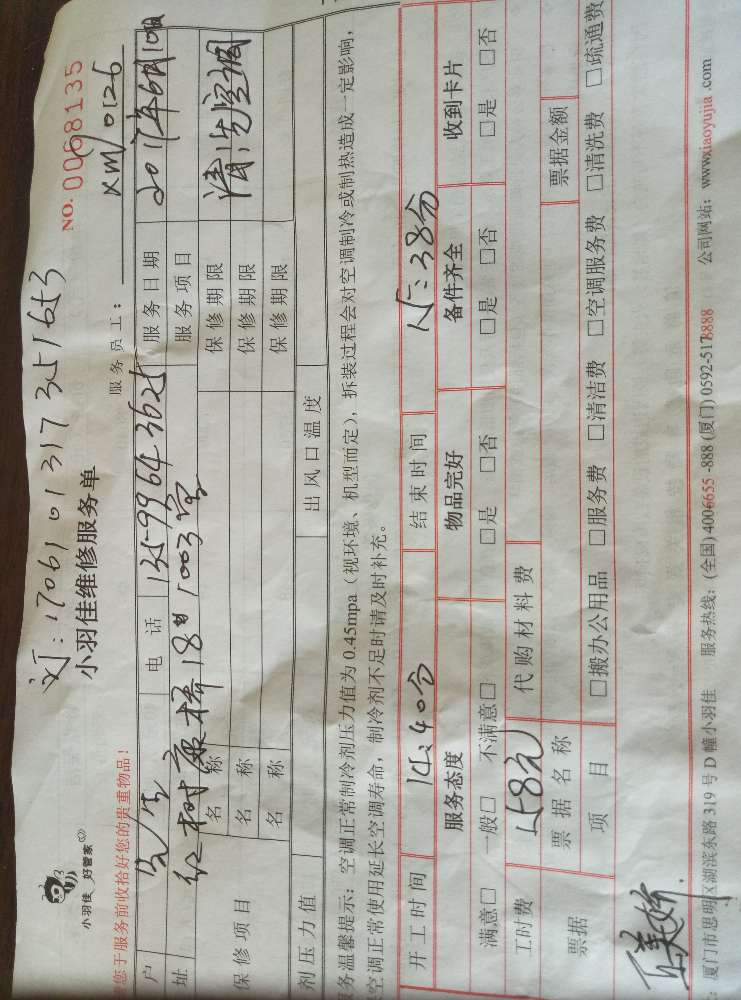 订:170610131735 1653
NO. 0068135
小羽佳 好管家
小羽佳维修服务单
服务员工: xm0126
您于服务前收拾好您的贵重物品!
户 电话 135-9964 3625 服务日期 2017年6月10日
址 红树康桥18# 1003室 服务项目 清洗空调
保修项目
名称 保修期限
名称 保修期限
名称 保修期限
剂压力值 出风口温度
服务温馨提示: 空调正常制冷剂压力值为 0.45mpa(视环境、机型而定),拆装过程会对空调制冷或制热造成一定影响,
空调正常使用延长空调寿命,制冷剂不足时请及时补充。
开工时间 14:40分 结束时间 15:38分
服务态度 物品完好 备件齐全 收到卡片
满意□ 一般□ 不满意□ □是 □否 □是 □否 □是 □否
工时费 158元 代购材料费
票据 票据名称 票据金额
项目 □搬办公用品 □服务费 □清洁费 □空调服务费 □清洗费 □疏通费
:厦门市思明区湖滨东路 319 号 D 幢小羽佳 服务热线:(全国) 4006655 -888 (厦门) 0592-5178888 公司网站:www.xiaoyujia .com